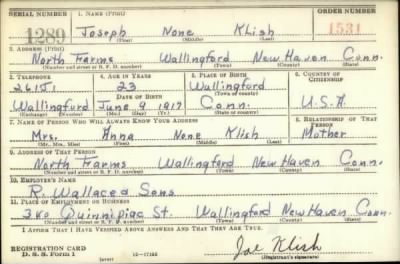 SERIAL NUMBER 1. NAME (Print) ORDER NUMBER
1289 Joseph None Klish 1531
(First) (Middle) (Last)
2. ADDRESS (Print)
North Farms Wallingford New Haven Conn.
(Number and street or R. F. D. number) (Town) (County) (State)
3. TELEPHONE 4. AGE IN YEARS 5. PLACE OF BIRTH 6. COUNTRY OF CITIZENSHIP
23 Wallingford
DATE OF BIRTH (Town or county)
Wallingford June 9 1917 Conn. U.S.A.
(Exchange) (Number) (Mo.) (Day) (Yr.) (State or country)
7. NAME OF PERSON WHO WILL ALWAYS KNOW YOUR ADDRESS 8. RELATIONSHIP OF THAT PERSON
Mrs. Anna None Klish Mother
(Mr., Mrs., Miss) (First) (Middle) (Last)
9. ADDRESS OF THAT PERSON
North Farms Wallingford New Haven Conn.
(Number and street or R. F. D. number) (Town) (County) (State)
10. EMPLOYER'S NAME
R. Wallace & Sons
11. PLACE OF EMPLOYMENT OR BUSINESS
340 Quinnipiac St. Wallingford New Haven Conn.
(Number and street or R. F. D. number) (Town) (County) (State)
I AFFIRM THAT I HAVE VERIFIED ABOVE ANSWERS AND THAT THEY ARE TRUE.
REGISTRATION CARD Joe Klish
D. S. S. Form 1 (over) (Registrant's signature)